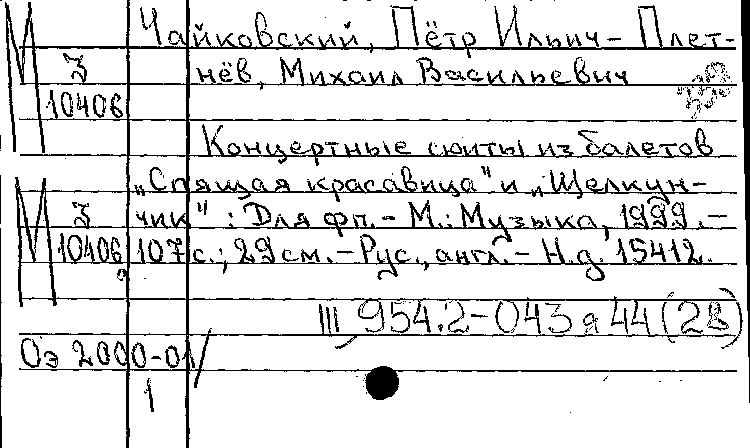 Чайковский, Пётр Ильич - Плет-
М З нёв, Михаил Васильевич
10406
Концертные сюиты из балетов
„Спящая красавица" и „Щелкун-
М З чик" : Для фп. - М.: Музыка, 1999. -
10406 107 с.; 29 см. - Рус., англ. - Н.д. 15412.
III, 954.2-043 я 44 (2В)
Оэ 2000-01/
1